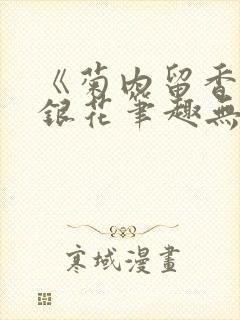 《菊内留香
銀花筆趣無
寒域漫畫